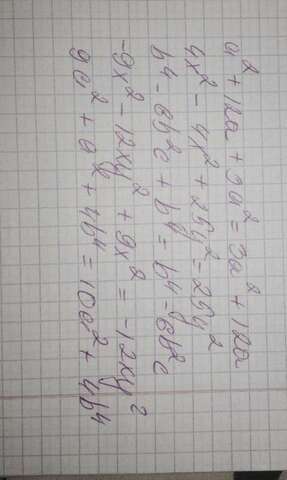 a² + 12a + 2a² = 3a² + 12a
4x² - 4x² + 25y² = 25y²
b⁴ - 6b²c + b⁴ = b⁴ - 6b²c
-9x² - 12xy² + 9x² = -12xy²
9a² + a² + 4b⁴ = 10a² + 4b⁴